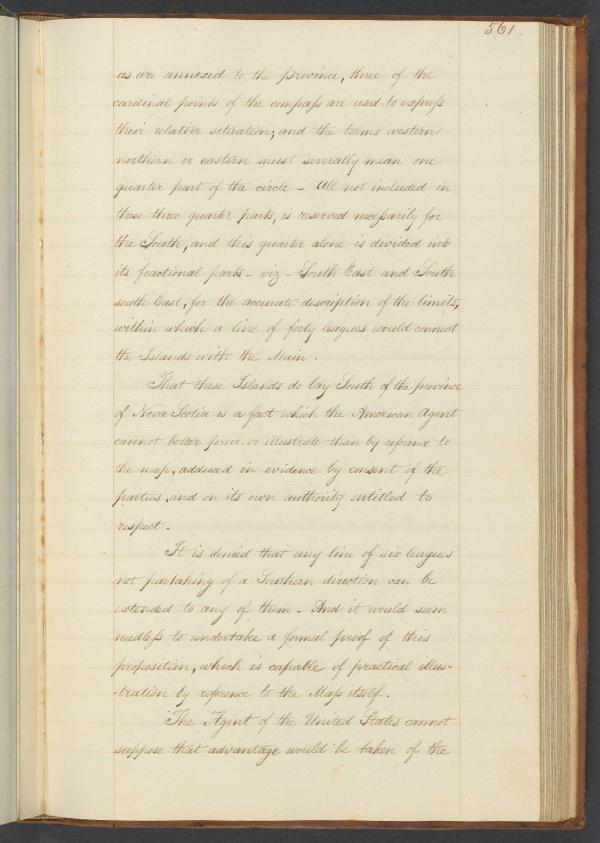 561.
as are annexed to the province, three of the
cardinal points of the compass are used to express
their relative situation; and the terms western
northern or eastern must severally mean one
quarter part of the circle - All not included in
these three quarter parts, is reserved necessarily for
the South, and this quarter alone is divided into
its fractional parts - viz - South East and South
south East, for the accurate description of the limits,
within which a line of forty leagues would connect
the Islands with the Main.
That these Islands do lay South of the province
of Nova Scotia is a fact which the American Agent
cannot better prove or illustrate than by reference to
the map, adduced in evidence by consent of the
parties, and on its own authority entitled to
respect.
It is denied that any line of six leagues
not partaking of a Southern direction can be
extended to any of them - And it would seem
needless to undertake a formal proof of this
proposition, which is capable of practical illus-
-tration by reference to the Map itself.
The Agent of the United States cannot
suppose that advantage would be taken of the